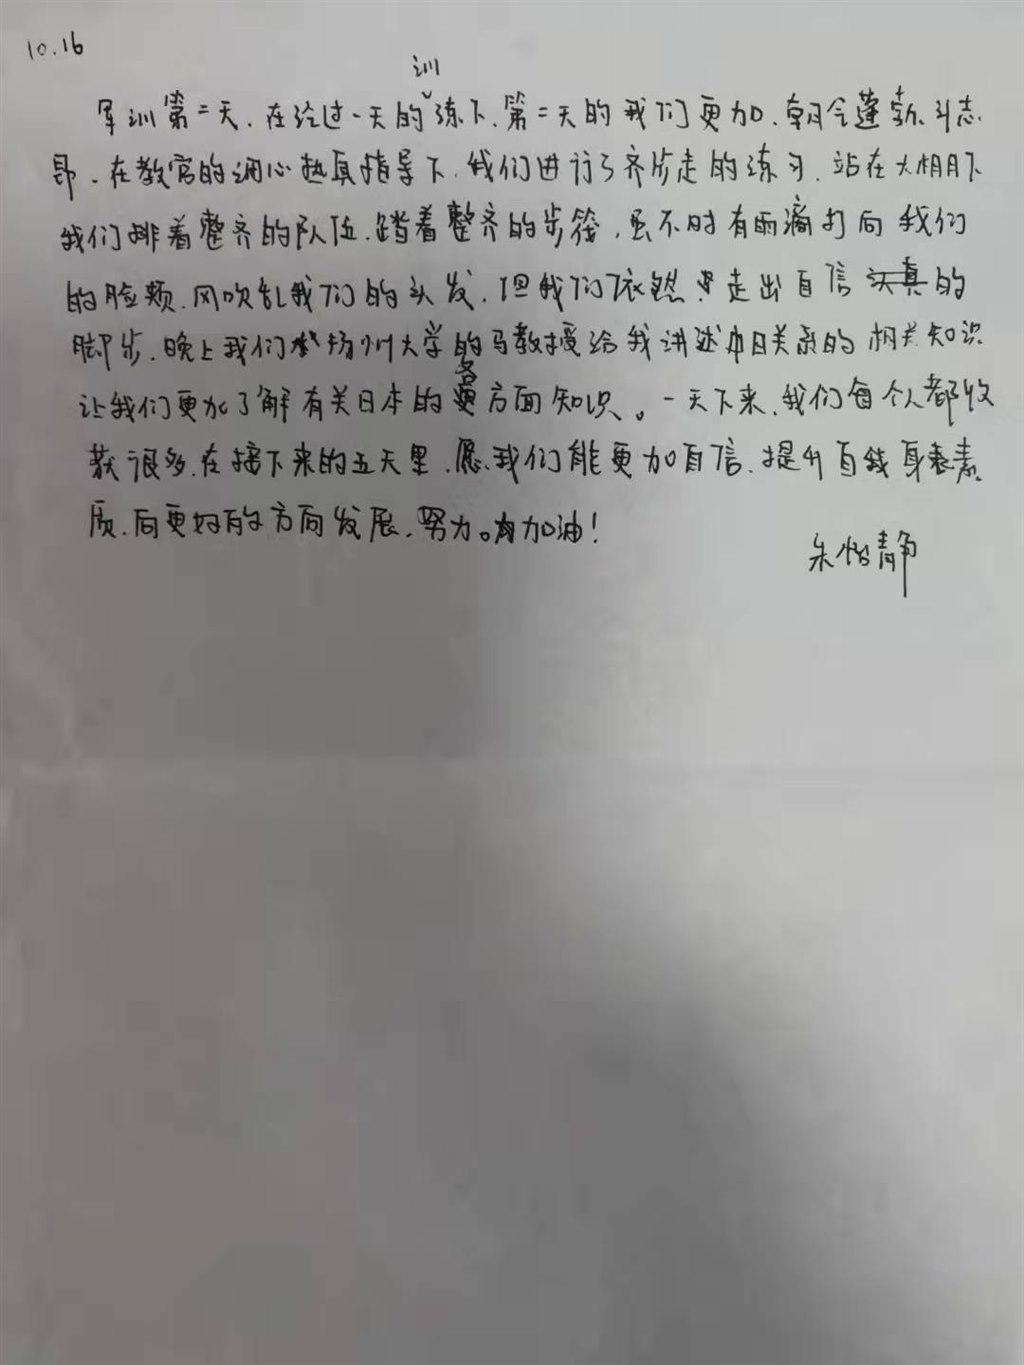 10.16
军训第二天,在经过一天的训练下,第二天的我们更加朝令蓬勃,斗志
昂,在教官的细心热真指导下,我们进行了齐步走的练习,站在大棚下
我们排着整齐的队伍,踏着整齐的步筏,虽不时有雨滴打向我们
的脸颊,风吹乱我们的头发,但我们依然走出自信的
脚步,晚上我们扬州大学的马教授给我讲述中日关系的相关知识
让我们更加了解有关日本的各方面知识。一天下来,我们每个人都收
获很多,在接下来的五天里,愿我们能更加自信,提升自身素
质,向更好的方向发展,努力。加油!
朱怡静